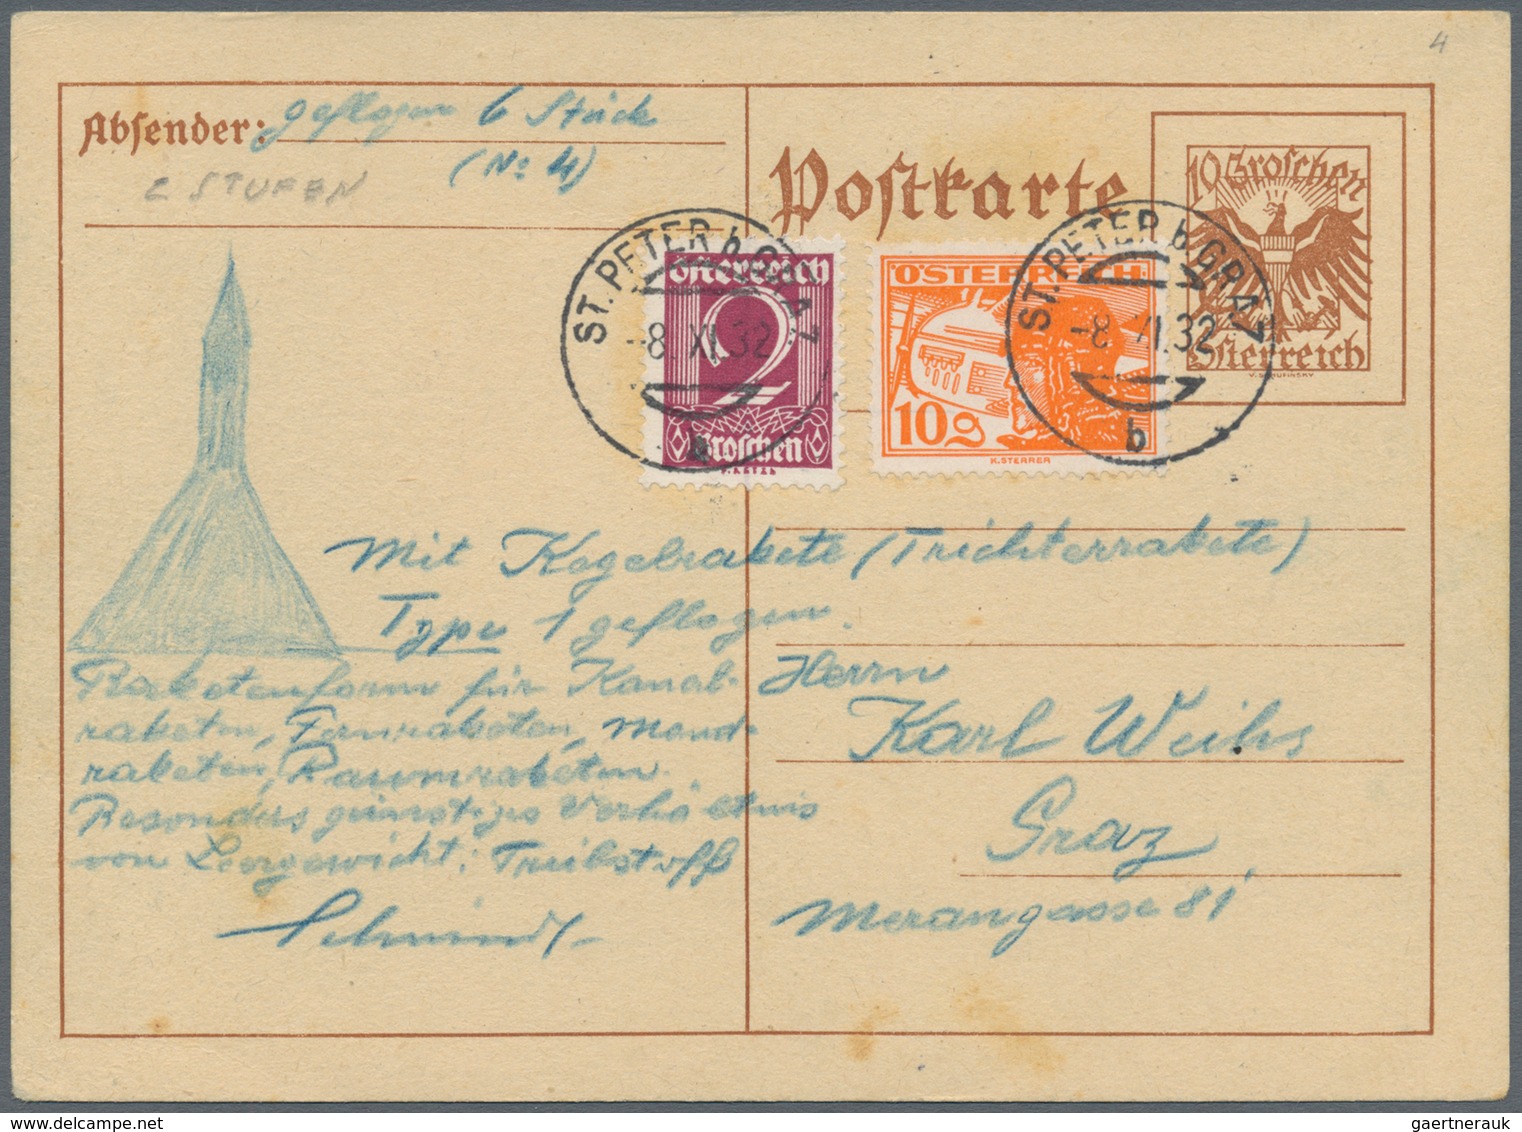 4
Absender: geflogen 6 Stück
(No 4)
2 STUFEN
Postkarte
10 Groschen
Österreich
V. SCHUFINSKY
ST. PETER b GRAZ
-8. XI. 32
b
Österreich
2
Groschen
ST. PETER b GRAZ
-8. XI. 32
b
ÖSTERREICH
10g
K. STERRER
Mit Kegelrakete (Trichterrakete)
Type 1 geflogen.
Raketenform für Kanal-
raketen, Fernraketen, Mond-
raketen, Raumraketen.
Besonders günstiges Verhältnis
von Leergewicht: Treibstoff
Schmiedl
Herrn
Karl Weihs
Graz
Merangasse 81
gaertnerauk
delcampe.net